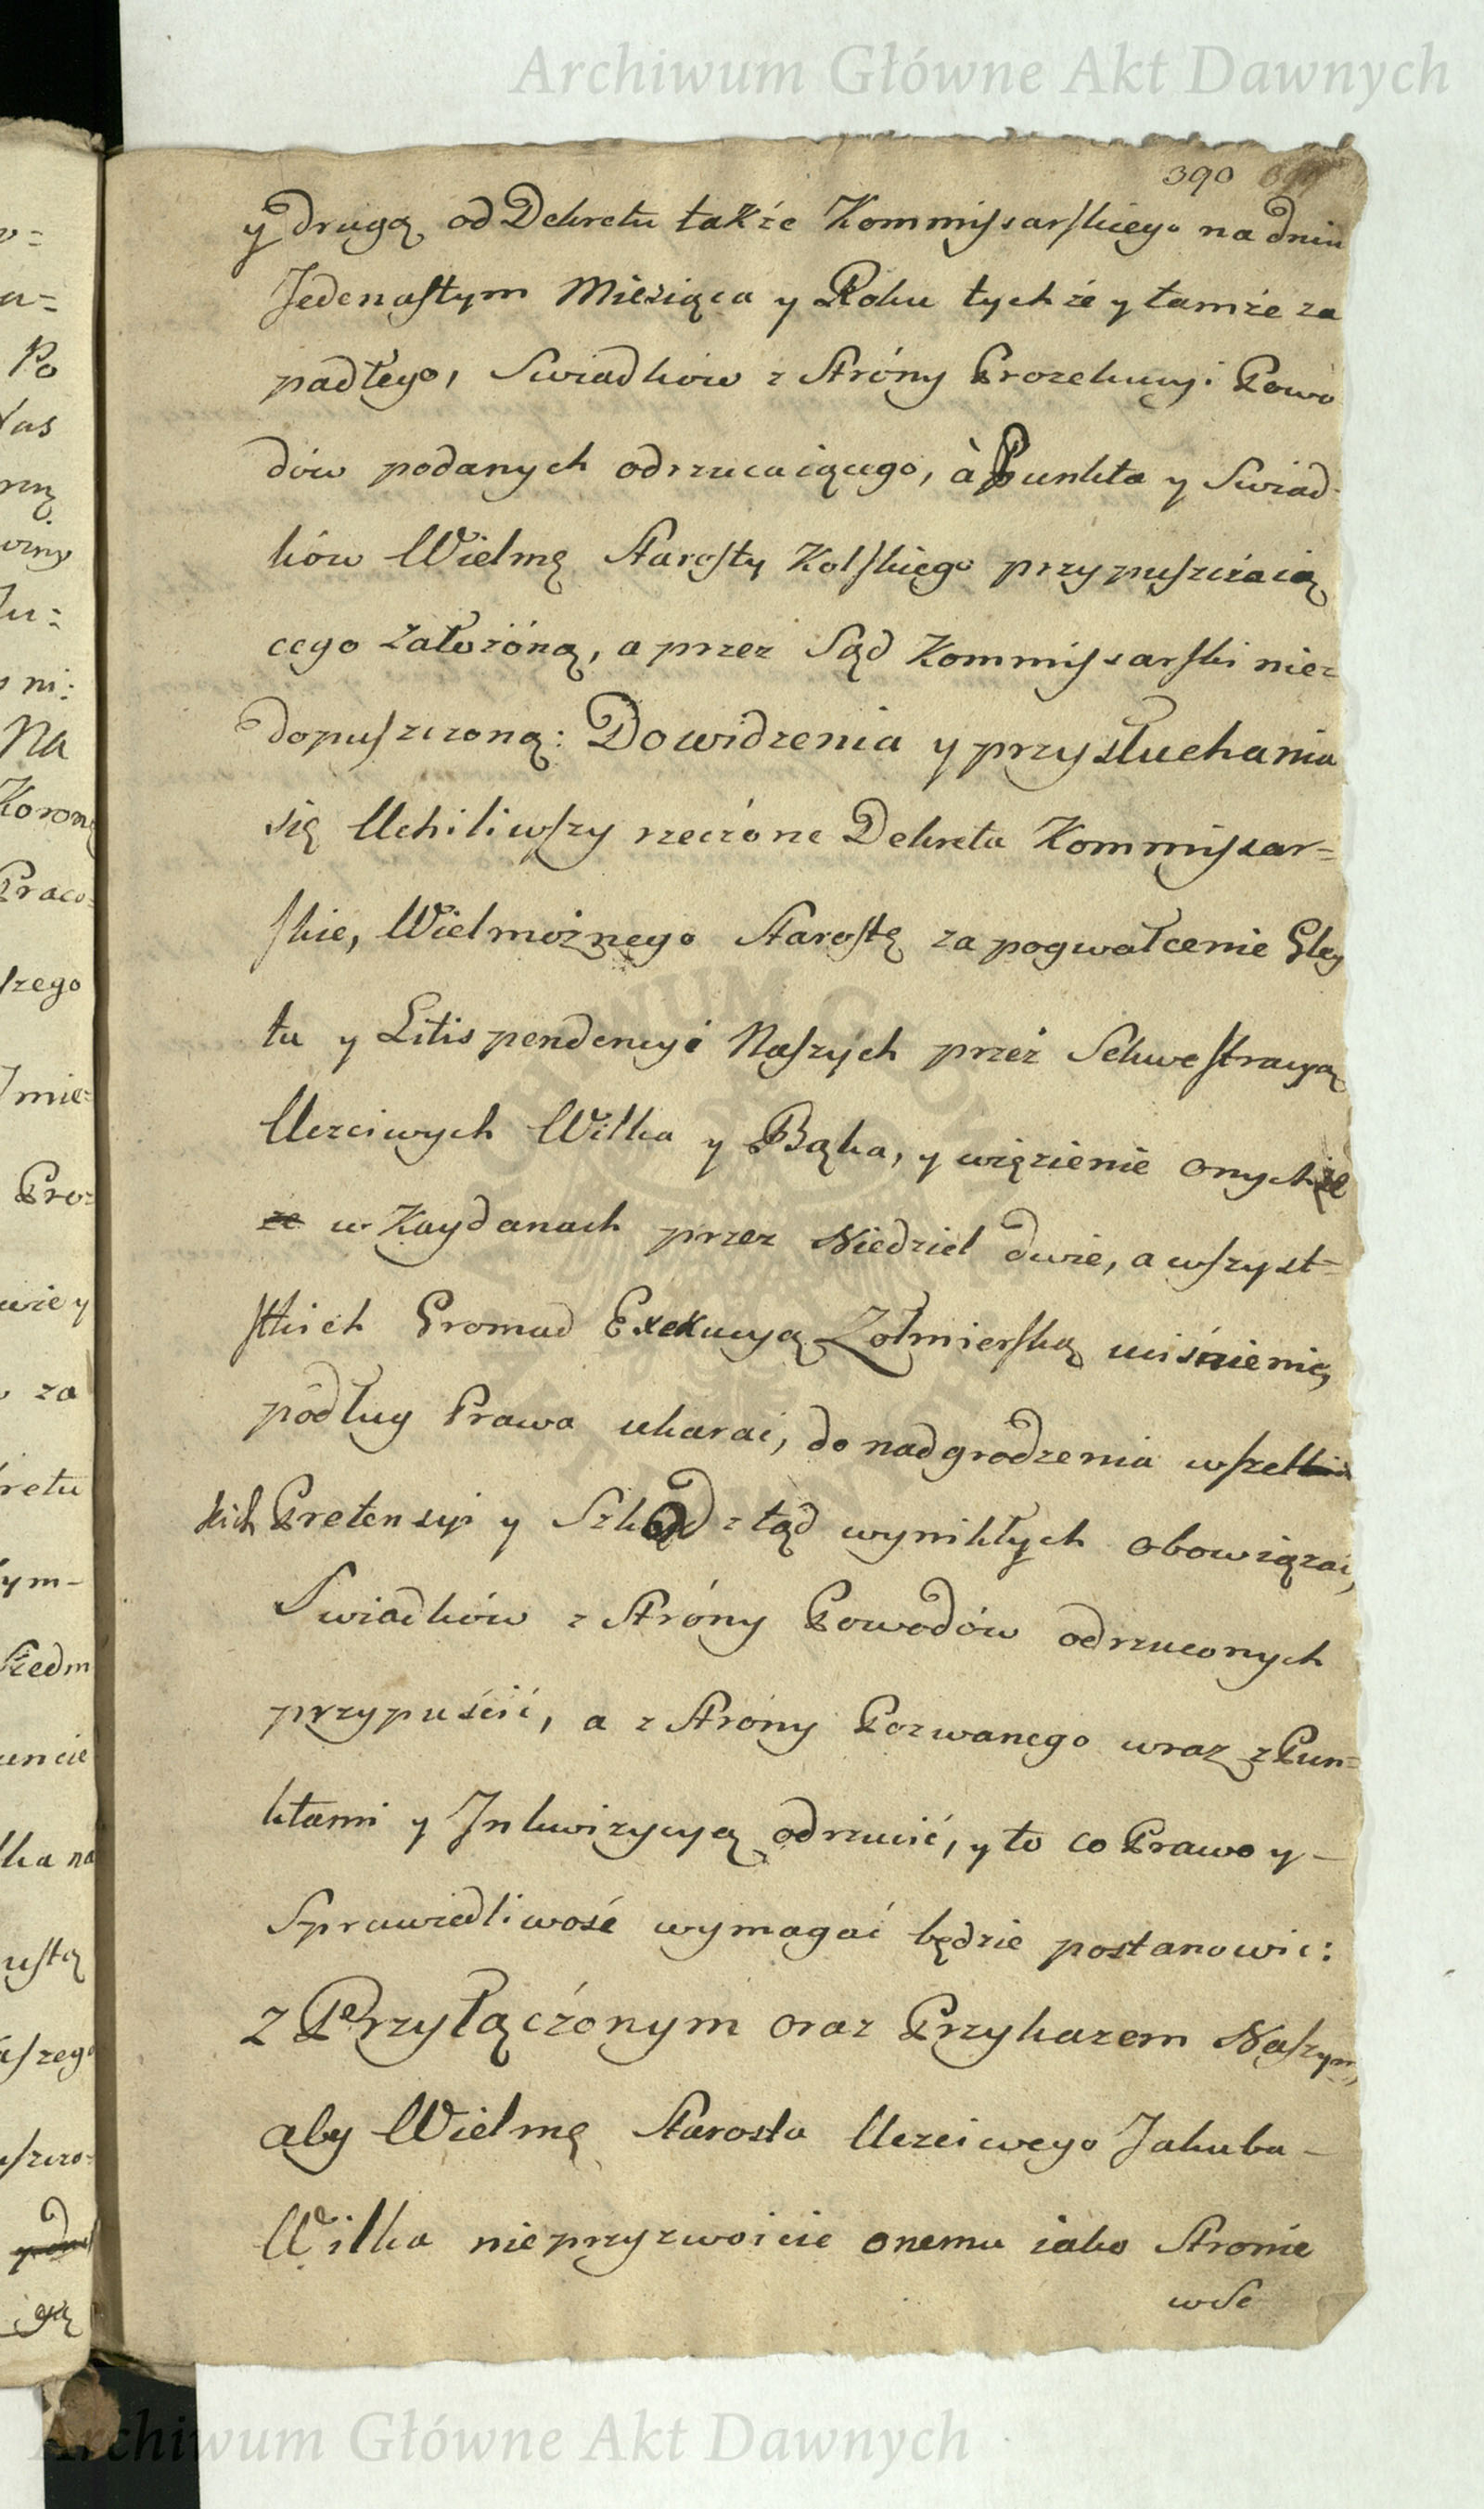 Archiwum Główne Akt Dawnych
390
y drugą od Dekretu także Kommissarskiego na dniu
Jedenastym Miesiąca y Roku tychże y tamże za
padłego, Swiadkow z Stróny Prozekucyi Powo
dów podanych odrzucaiącego, à Punkta y Swiad-
ków Wielmę Starosty Kolskiego przypuszczaią
cego założóną, a przez Sąd Kommissarski nie=
dopuszczoną: Do widzenia y przysłuchania
się Uchiliwszy rzeczóne Dekreta Kommissar=
skie, Wielmożnego Starostę za pogwałcenie Gley
tu y Litispendencyi Naszych przeż Sekwestracyą
Uczciwych Wilka y Bąka, y więzienie onychże
ze w Kaydanach przez Niedziel dwie, a wszyst=
stkich Gromad Exekucyą Zołnierską uciśnienie,
podług Prawa ukarać, do nadgrodzenia wszelki
kich Pretensyi y Szkód ztąd wynikłych obowiązać,
Swiadków z Stróny Powodów odrzuconych
przypuścić, a z Stróny Pozwanego wraz z Pun=
ktami y Inkwizycyą odrzucić, y to co Prawo y -
Sprawiedliwość wymagać będzie postanowić:
z Przyłączonym oraz Przykazem Naszym,
aby Wielmę Starosta Uczciwego Jakuba -
Wilka nieprzyzwoicie onemu iako Stronie
w Se
Archiwum Główne Akt Dawnych